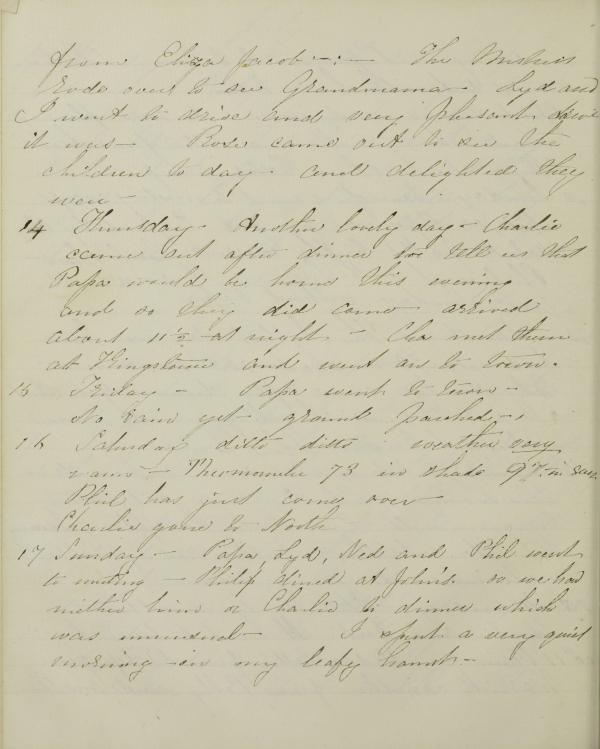 from Eliza Jacob -:- The Mistress
rode over to see Grandmama - Lyd and
I went to drive and very pleasant drive
it was - Rose came out to see the
children to day - and delighted they
were -
14 Thursday - Another lovely day - Charlie
came out after dinner to tell us that
Papa would be home this evening
and so they did come arrived
about 11 1/2 at night - Cha met them
at Kingstown and went on to town.
15 Friday - Papa went to town -
No rain yet - ground parched -
16 Saturday ditto ditto weather very
warm - Thermometer 73 in shade 97 in sun
Phil has just come over
Charlie gone to North
17 Sunday - Papa, Lyd, Ned and Phil went
to meeting - Philip dined at John's. so we had
neither him or Charlie to dinner which
was unusual - I spent a very quiet
morning - in my leafy haunt -